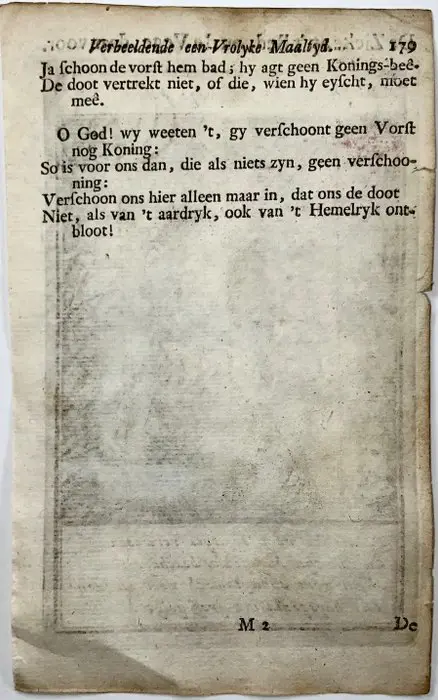 Verbeeldende een Vrolyke Maaltyd. 179
Ja ſchoon de vorſt hem bad; hy agt geen Konings-beê.
De doot vertrekt niet, of die, wien hy eyſcht, moet
meê.
O God! wy weeten 't, gy verſchoont geen Vorſt
nog Koning:
So is voor ons dan, die als niets zyn, geen verſchoo-
ning:
Verſchoon ons hier alleen maar in, dat ons de doot
Niet, als van 't aardryk, ook van 't Hemelryk ont-
bloot!
M 2 De